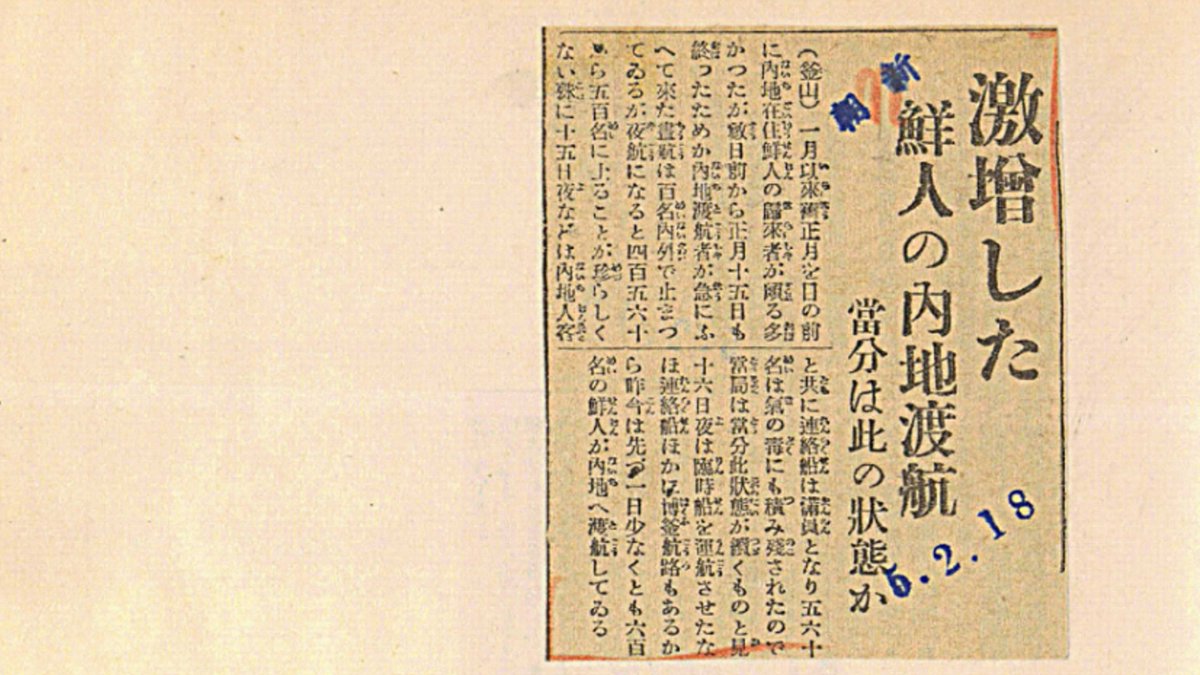 激增した
鮮人の內地渡航
當分は此の狀態か
朝新
5.2.18
(釜山)一月以來舊正月を目の前
に內地在住鮮人の歸來者が頗る多
かつたが數日前から正月十五日も
終つたためか內地渡航者が急にふ
へて來た晝航は百名內外で止まつ
てゐるが夜航になると四百五六十
から五百名に上ることが珍らしく
ない殊に十五日夜などは內地人客
と共に連絡船は滿員となり五六十
名は氣の毒にも積み殘されたので
當局は當分此狀態が續くものと見
十六日夜は臨時船を運航させたな
ほ連絡船ほかに博釜航路もあるか
ら昨今は先づ一日少なくとも六百
名の鮮人が內地へ渡航してゐる